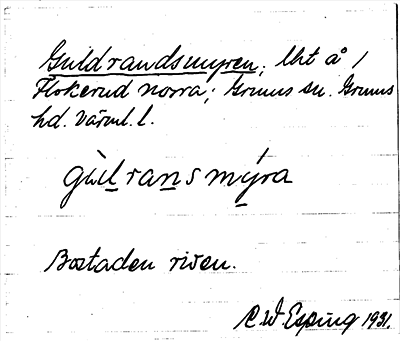 Guldrandsmyren, lht å 1/
Flokerud norra; Grums sn. Grums
hd. Värml. l.
gùlransmýra
Bostaden riven.
R W Esping 1931.